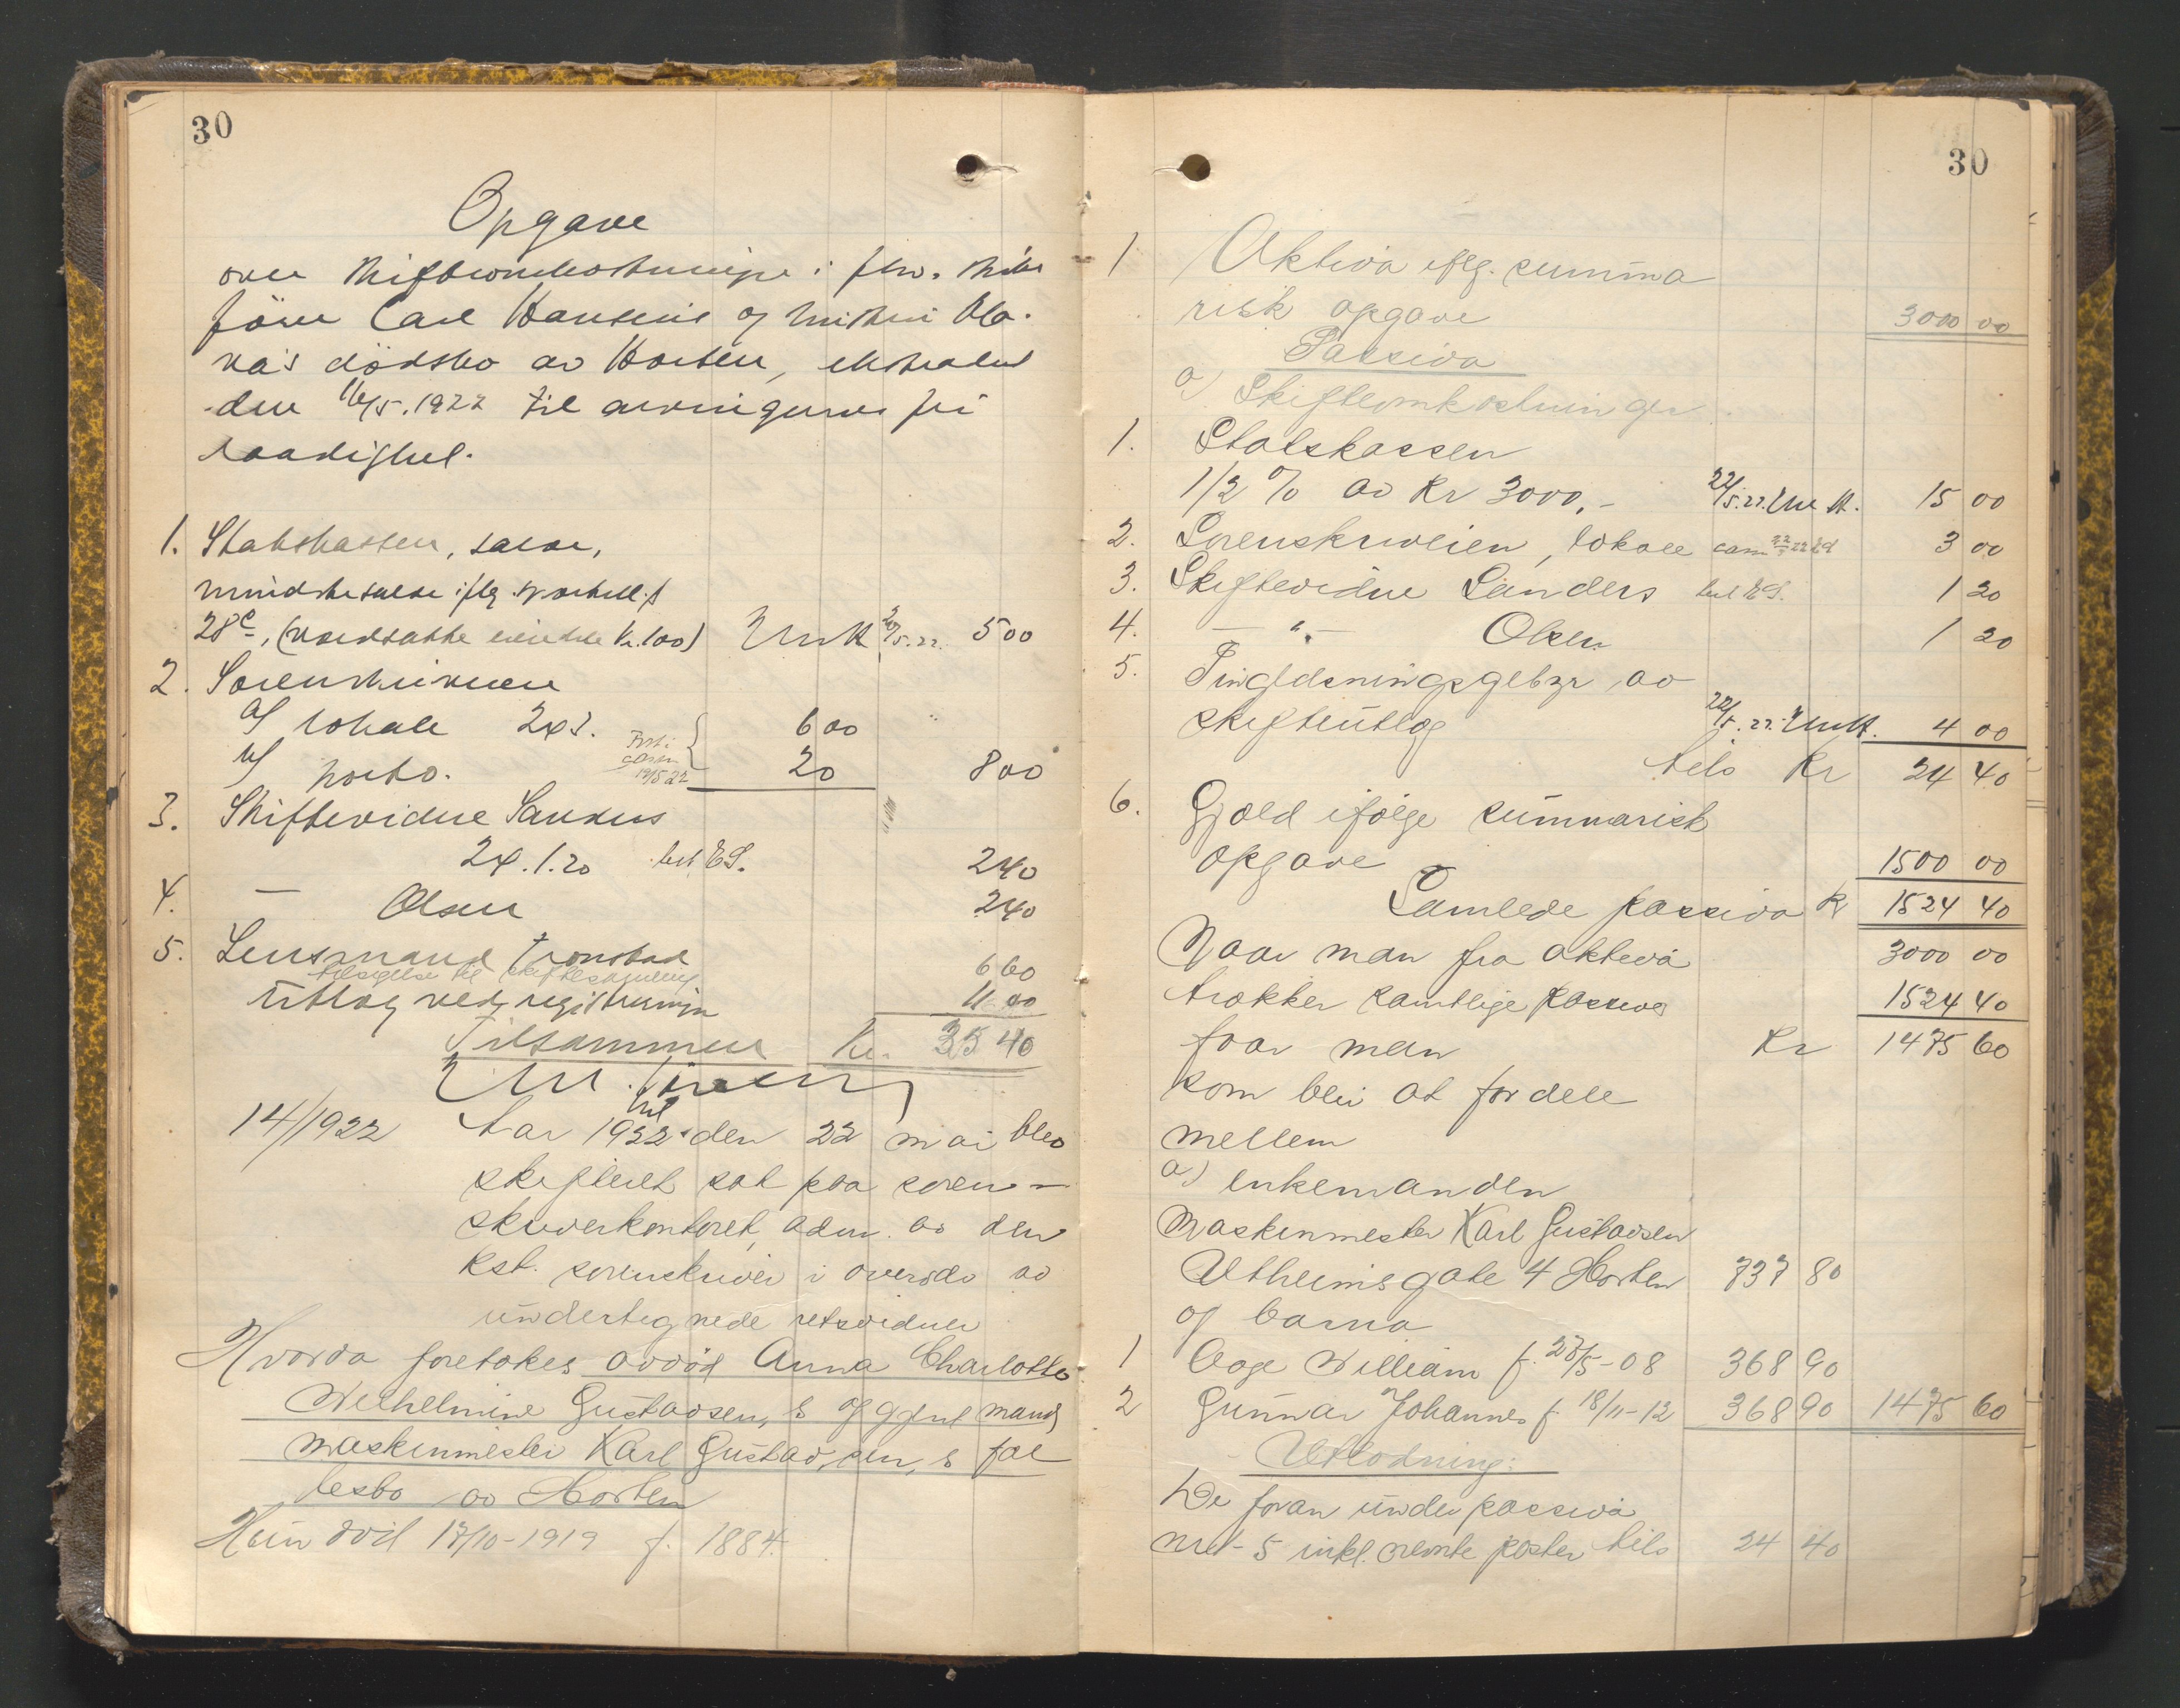 30
Opgave
over skifteomkostninger i fhv. skibs
fører Carl Hansens og hustru
dødsbo av Horten, ekstradert
den 16/5.1922 til arvingernes fri
raadighet.
1. Statskassen, skiftesalær,
mindste salær iflg. sportell.l
28c, (verdsatte eiendele kr. 100) 20/5.22. 5 00
2. Sorenskriveren
a/ lokale 2x3. 6 00
b/ porto. 20 8 00
3. Skiftevidne Sanders
2x1.20 bet. ES. 2 40
4. — Olsen 2 40
5. Lensmand Tronstad
tilsigelse til skiftesamling 6 60
Utlæg ved registrering 11 00
Tilsammen kr. 35 40
14/1922 Aar 1922 den 22 mai blev
skifteret sat paa soren-
skriverkontoret, adm. av den
kst. sorenskriver i overvær av
undertegnede retsvidner
Hvorda foretokes avdød Anna Charlotte
Wilhelmine Gustavsen, s og gjenl mand
maskinmester Karl Gustavsen, s fæl
lesbo av Horten
Hun død 17/10-1919 f. 1884.
30
1 Aktiva iflg. summa
risk opgave 3000 00
Passiva
a) Skifteomkostninger
1. Statskassen
1/2 % av Kr 3000,- 22/5.22. 15 00
2. Sorenskriveren, lokale 3 00
3. Skiftevidne Sanders bet ES. 1 20
4. — " — Olsen 1 20
5. Tinglæsningsgebyr av
skifteutlæg 22/5.22. 4 00
tils Kr 24 40
6. Gjæld ifølge summarisk
opgave 1500 00
Samlede passiva kr 1524 40
Naar man fra aktiva 3000 00
trækker samtlige passiva 1524 40
faar man Kr 1475 60
som blir at fordele
mellem
a) enkemanden
Maskinmester Karl Gustavsen
Utheimsgate 4 Horten 737 80
og barna
1 Aage William f. 28/5-08 368 90
2 Gunnar Johannes f 18/11-12 368 90 1475 60
Utlodning:
De foran under passiva
nr 1-5 inkl. nevnte poster tils 24 40